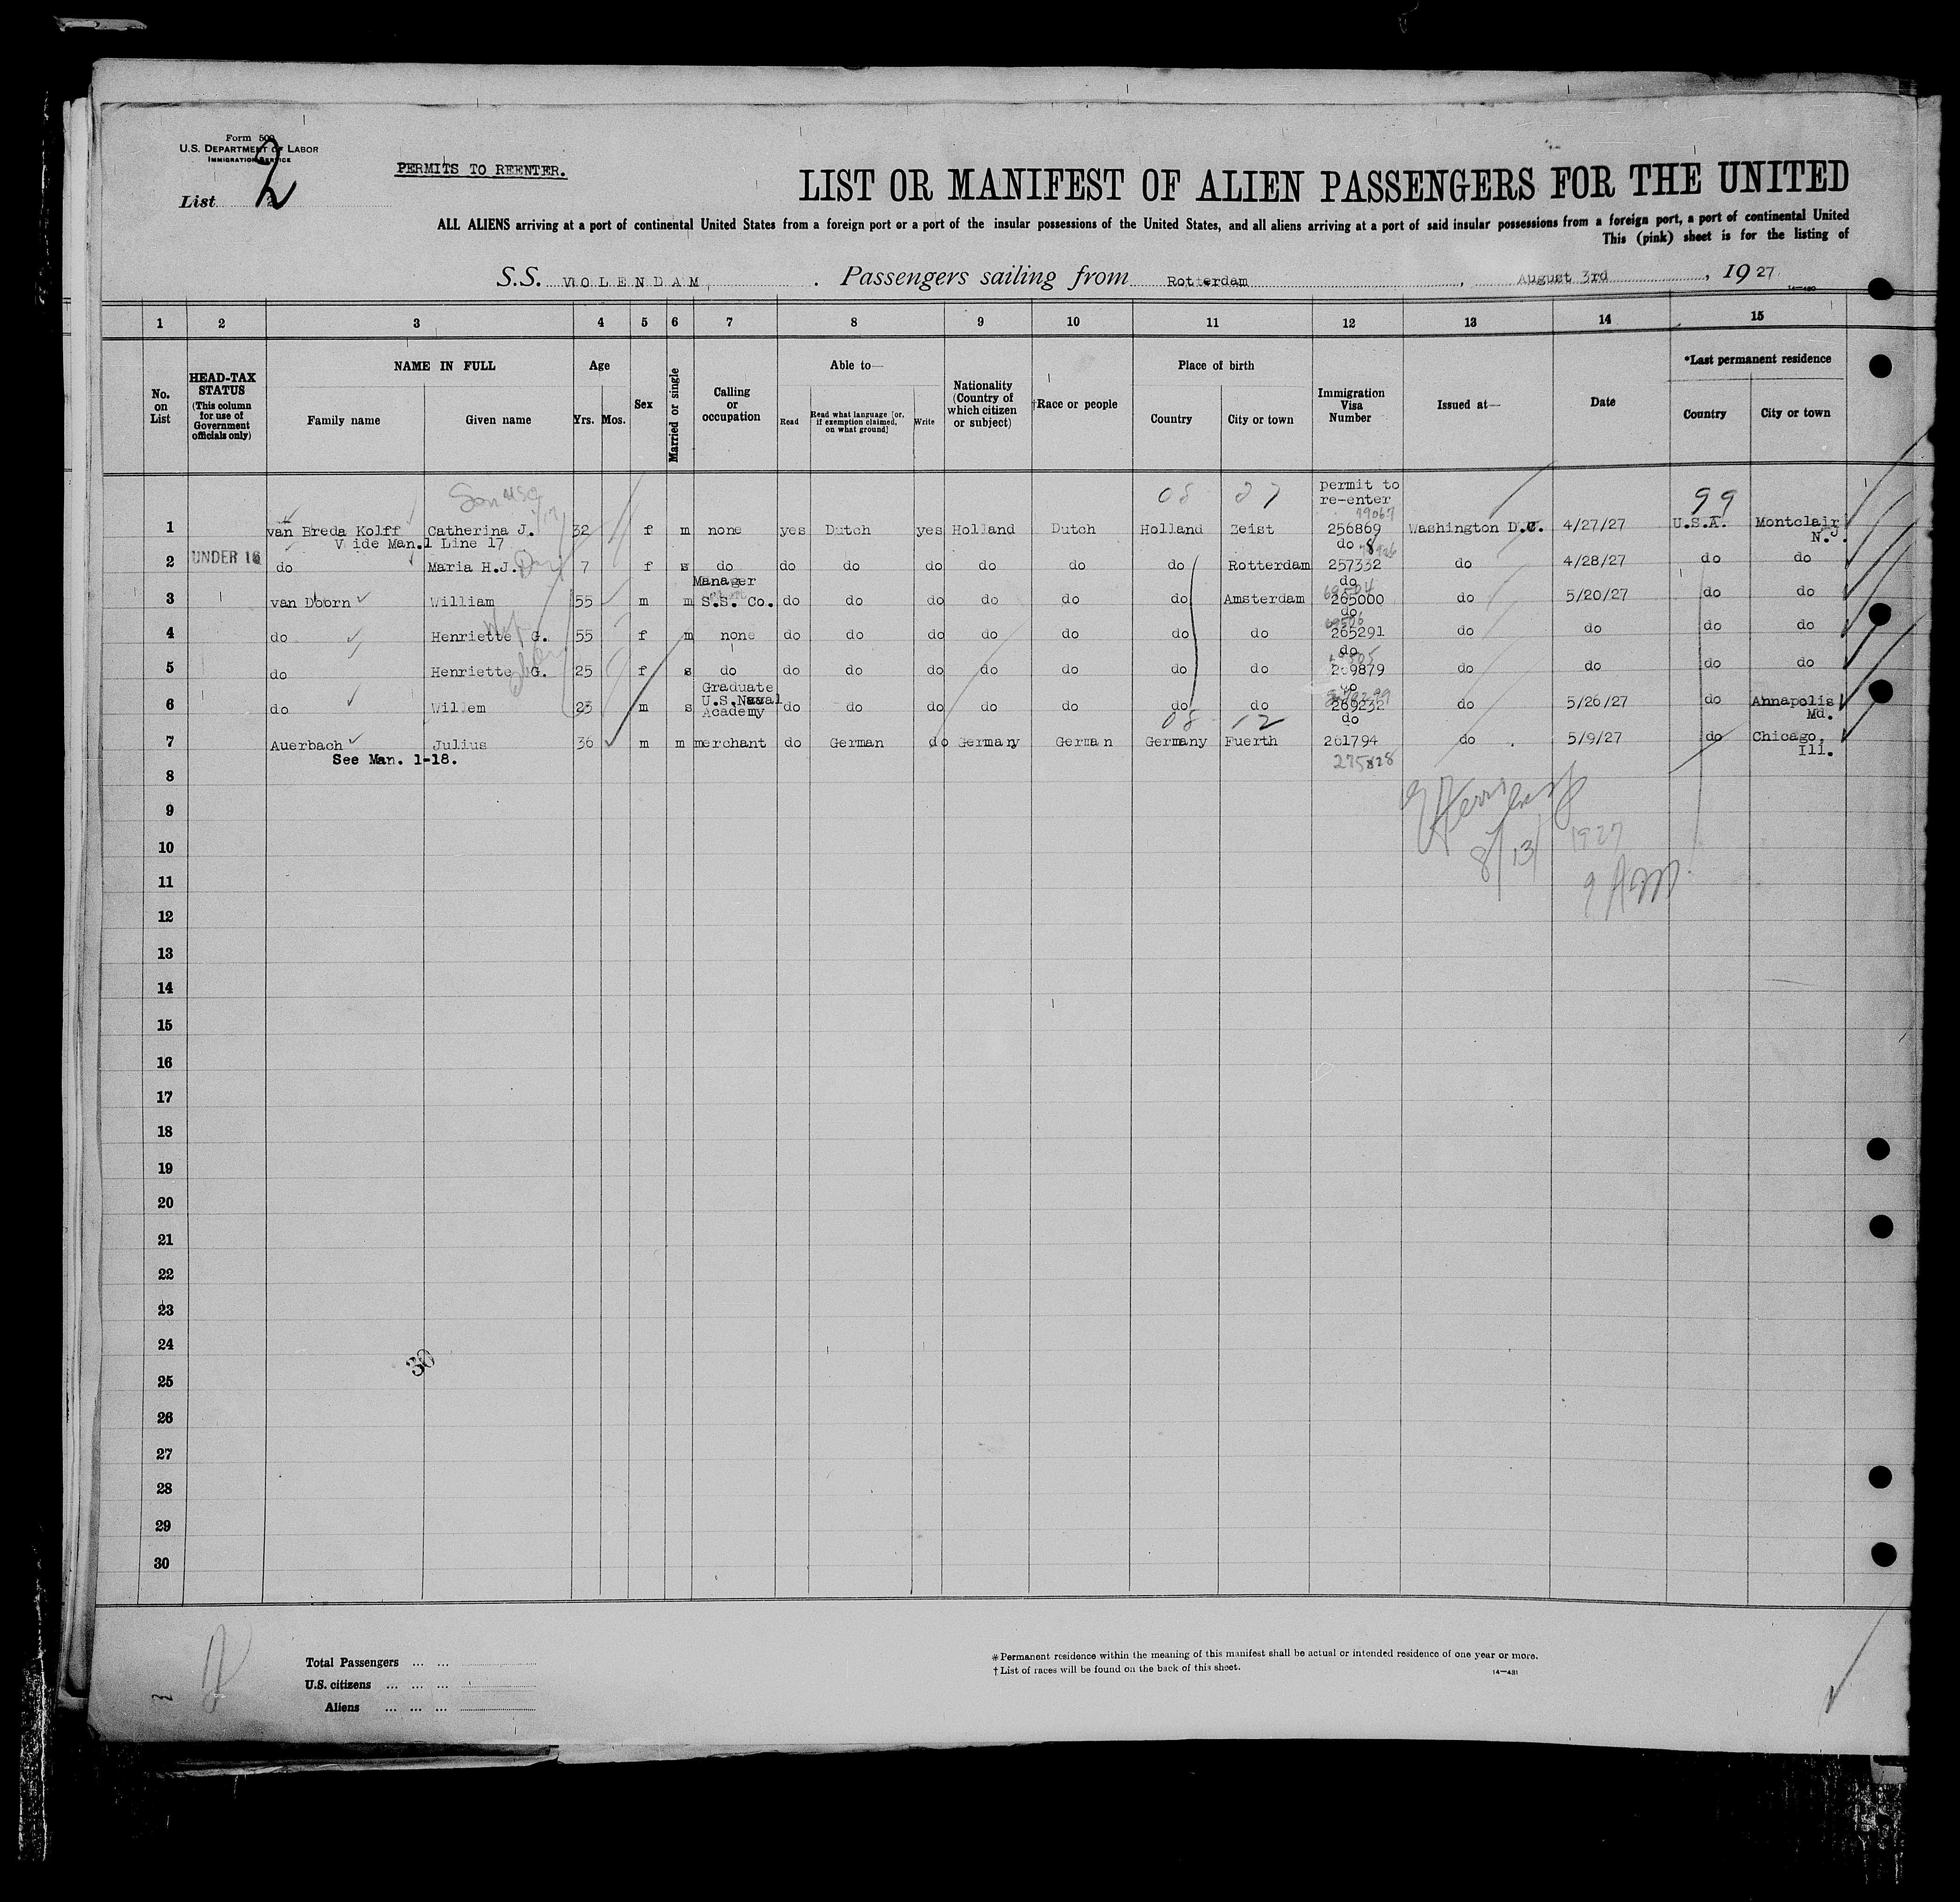 Form 500
U.S. DEPARTMENT OF LABOR
IMMIGRATION SERVICE
List 2
PERMITS TO REENTER.
LIST OR MANIFEST OF ALIEN PASSENGERS FOR THE UNITED
ALL ALIENS arriving at a port of continental United States from a foreign port or a port of the insular possessions of the United States, and all aliens arriving at a port of said insular possessions from a foreign port, a port of continental United
This (pink) sheet is for the listing of
S.S. VOLENDAM, Passengers sailing from Rotterdam, August 3rd, 1927
14—480
1 2 3 4 5 6 7 8 9 10 11 12 13 14 15
No. on List
HEAD-TAX STATUS (This column for use of Government officials only)
NAME IN FULL
Family name Given name
Age
Yrs. Mos.
Sex
Married or single
Calling or occupation
Able to—
Read
Read what language [or, if exemption claimed, on what ground]
Write
Nationality (Country of which citizen or subject)
†Race or people
Place of birth
Country City or town
Immigration Visa Number
Issued at—
Date
*Last permanent residence
Country City or town
08 27 permit to re-enter 99
1 van Breda Kolff Catherina J. 32 f m none yes Dutch yes Holland Dutch Holland Zeist 256869 Washington D.C. 4/27/27 U.S.A. Montclair N.J.
Vide Man.1 Line 17 do
2 UNDER 16 do Maria H.J. 7 f s do do do do do do do Rotterdam 257332 do 4/28/27 do do
do
3 van Doorn William 55 m m Manager S.S. Co. do do do do do do Amsterdam 265000 do 5/20/27 do do
do
4 do Henriette G. 55 f m none do do do do do do do 265291 do do do do
do
5 do Henriette G. 25 f s do do do do do do do do 269879 do do do do
do
6 do Willem 23 m s Graduate U.S.Naval Academy do do do do do do do 269232 do 5/26/27 do Annapolis Md.
08 12 do
7 Auerbach Julius 36 m m merchant do German do Germany German Germany Fuerth 261794 do 5/9/27 do Chicago, Ill.
See Man. 1-18. 275828
8
9
8/13/1927
10
11
9 AM
12
13
14
15
16
17
18
19
20
21
22
23
24
30
25
26
27
28
29
30
Total Passengers ... ...
U.S. citizens ... ... ...
Aliens ... ... ...
*Permanent residence within the meaning of this manifest shall be actual or intended residence of one year or more.
†List of races will be found on the back of this sheet.
14—481